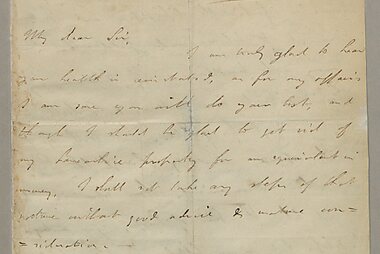 My dear Sir,
I am truly glad to hear
your health is reinstated, as for my affairs
I am sure you will do your best, and
though I should be glad to get rid of
my Lancashire property for an equivalent in
money, I shall not take any steps of that
nature without good advice & mature con=
=sideration.